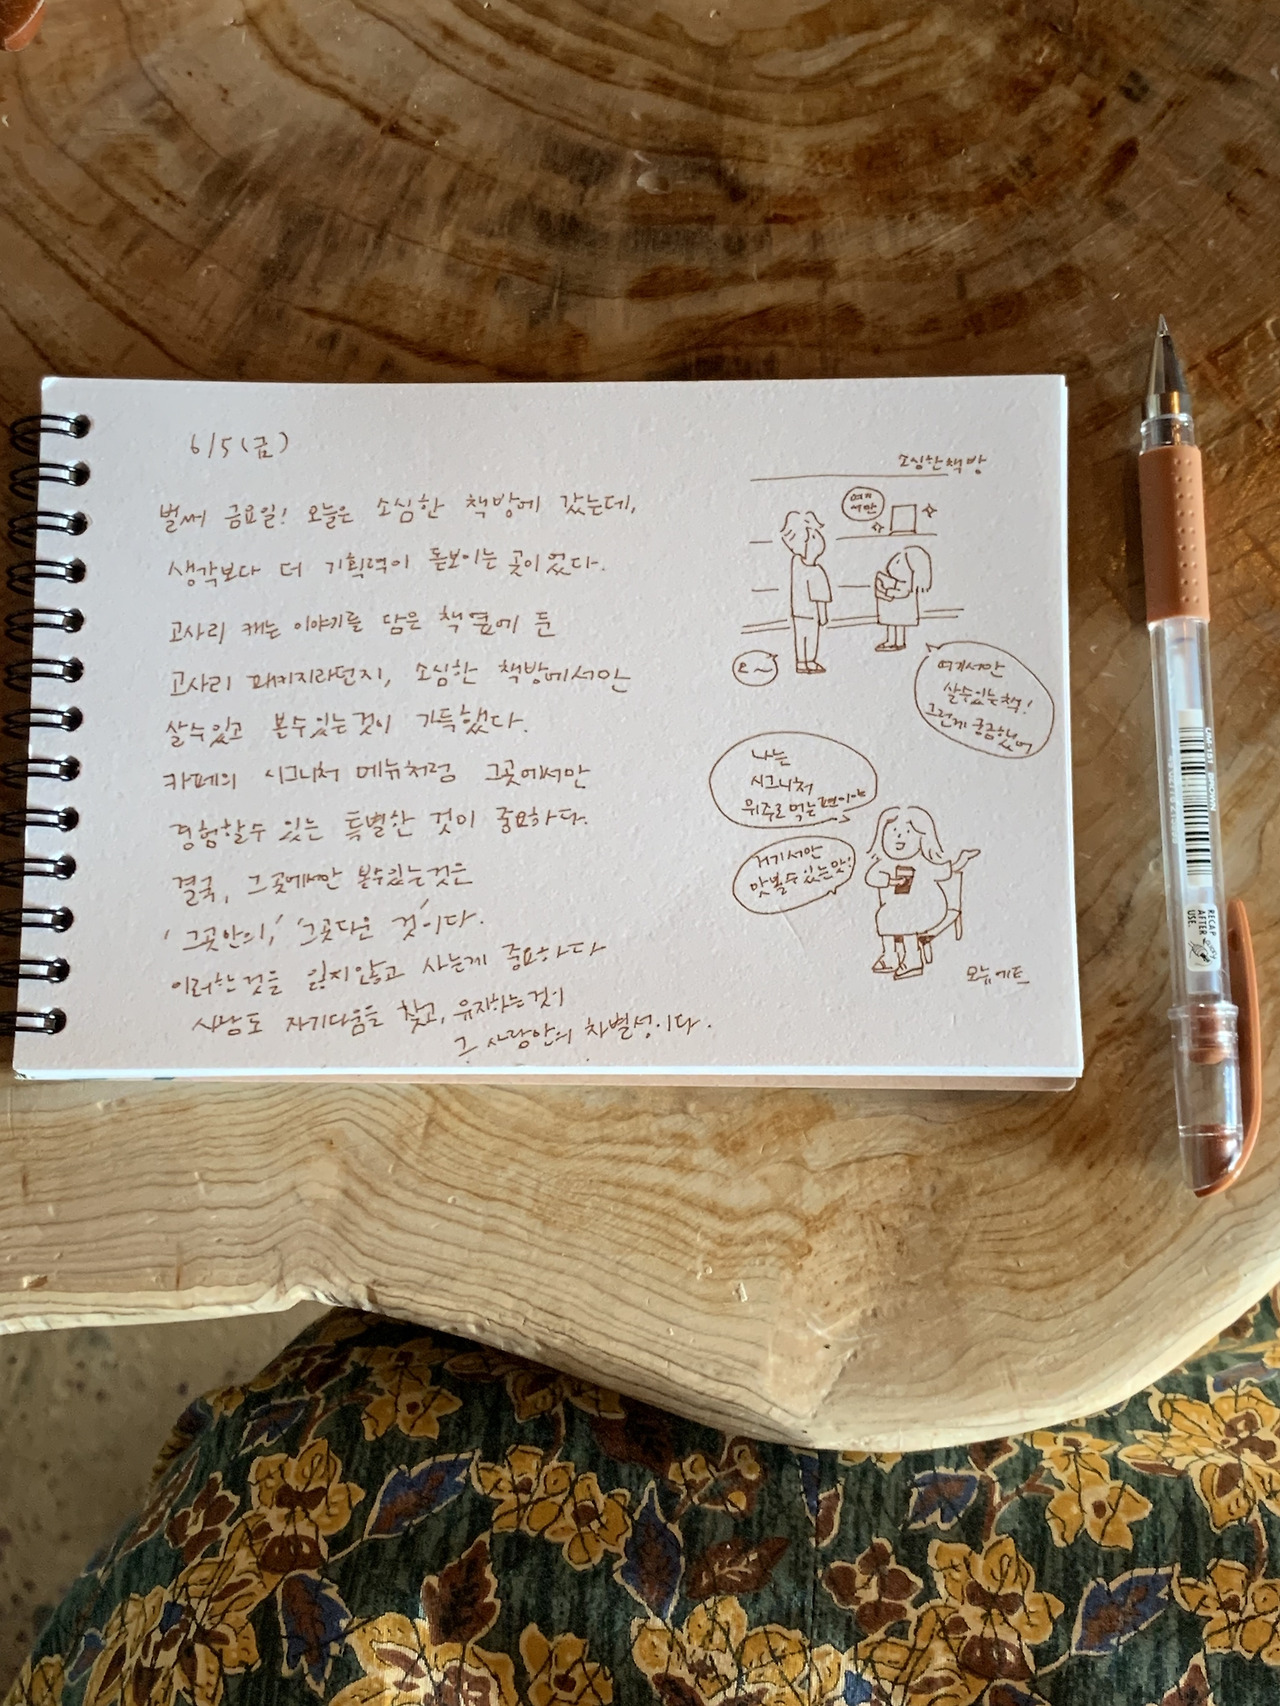 6/5 (금)
벌써 금요일! 오늘은 소심한 책방에 갔는데,
생각보다 더 기획력이 돋보이는 곳이었다.
고사리 캐는 이야기를 담은 책 옆에 둔
고사리 패키지라던지, 소심한 책방에서만
살수있고 볼수있는것이 가득했다.
카페의 시그니처 메뉴처럼 그곳에서만
경험할수 있는 특별한 것이 중요하다.
결국, 그곳에서만 볼수있는것은
'그곳만의,' '그곳다운 것'이다.
이러한것을 잃지않고 사는게 중요하다
사람도 자기다움을 찾고, 유지하는것이
그 사람만의 차별성이다.
소심한책방
여기
서만
오~
여기서만
살수있는책!
그런게 궁금했어
나는
시그니처
위주로먹는편이야
거기서만
맛볼수있는맛!
오뉴에트
UM-151 BROWN
RECAP
AFTER
USE.